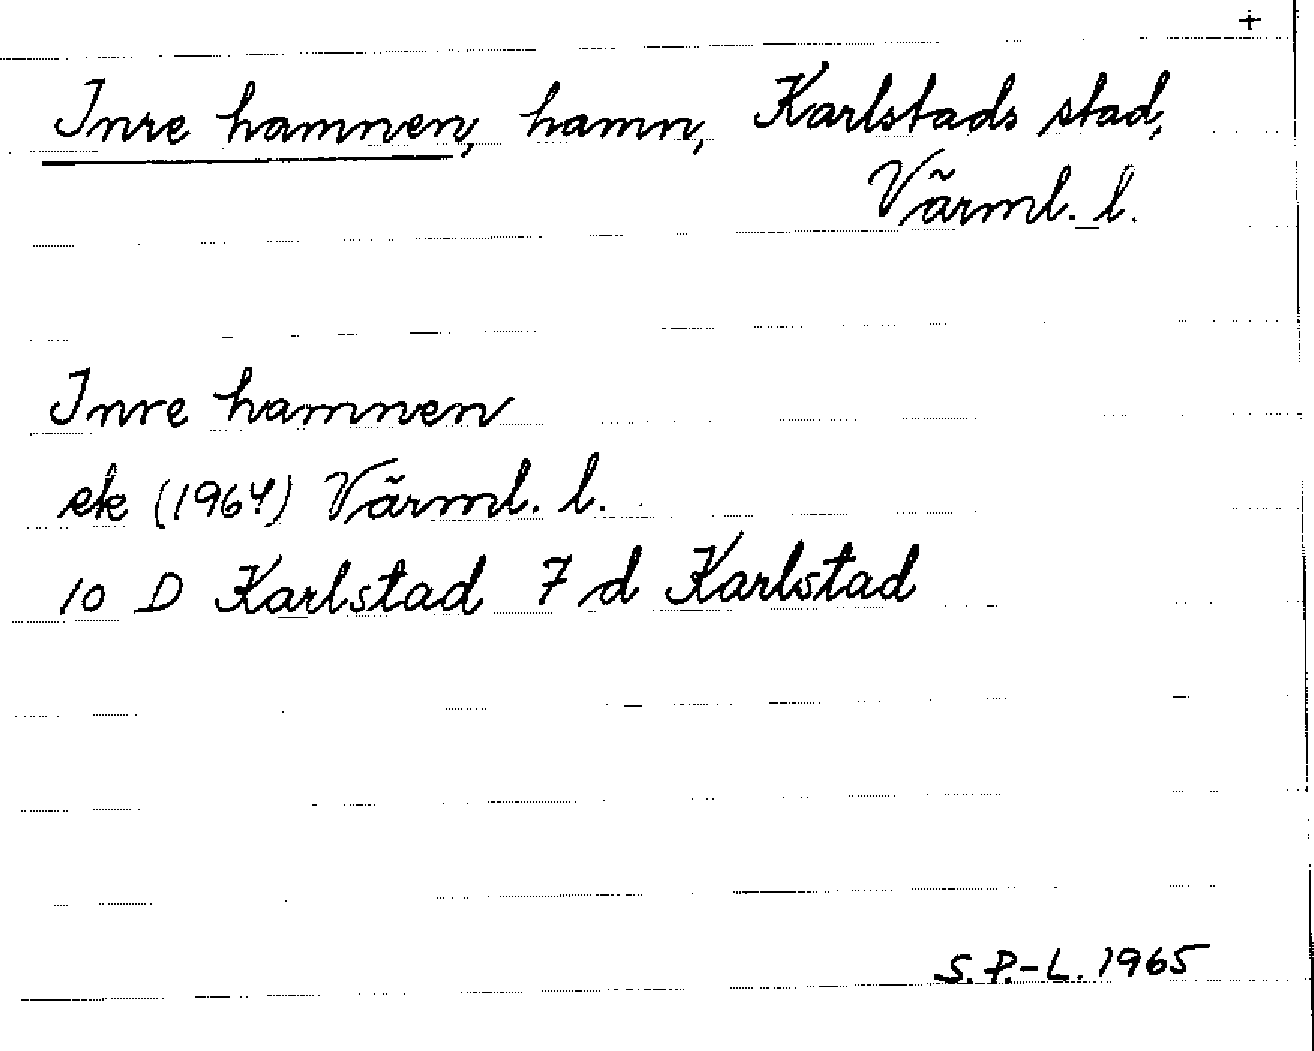 +
Inre hamnen, hamn, Karlstads stad,
Värml. l.
Inre hamnen
ek (1964) Värml. l.
10 D Karlstad 7 d Karlstad
S.P.-L. 1965